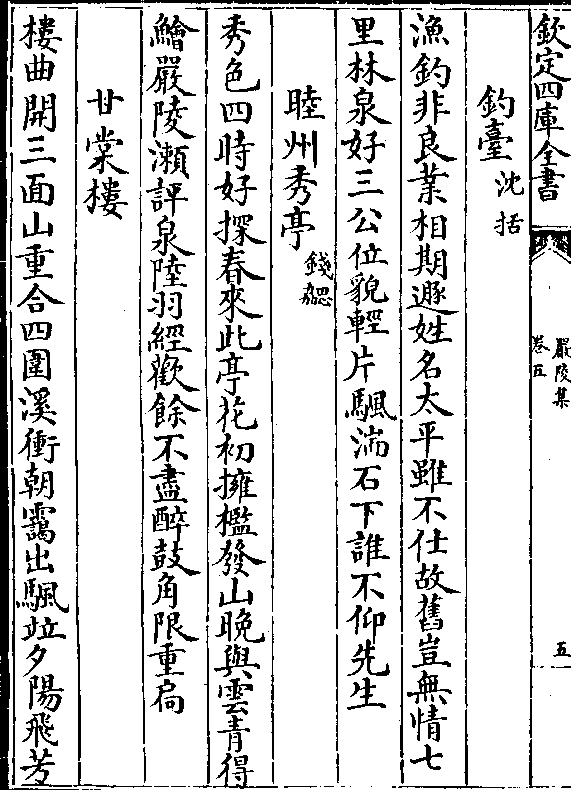 欽定四庫全書
嚴陵集
卷五
五
釣臺 沈括
漁釣非良業相期遯姓名太平雖不仕故舊豈無情七
里林泉好三公位貌輕片颿湍石下誰不仰先生
睦州秀亭 錢勰
秀色四時好探春來此亭花初擁檻發山晚與雲青得
鱠嚴陵瀨評泉陸羽經歡餘不盡醉鼓角限重扃
甘棠樓
樓曲開三面山重合四圍溪衝朝靄出颿竝夕陽飛芳